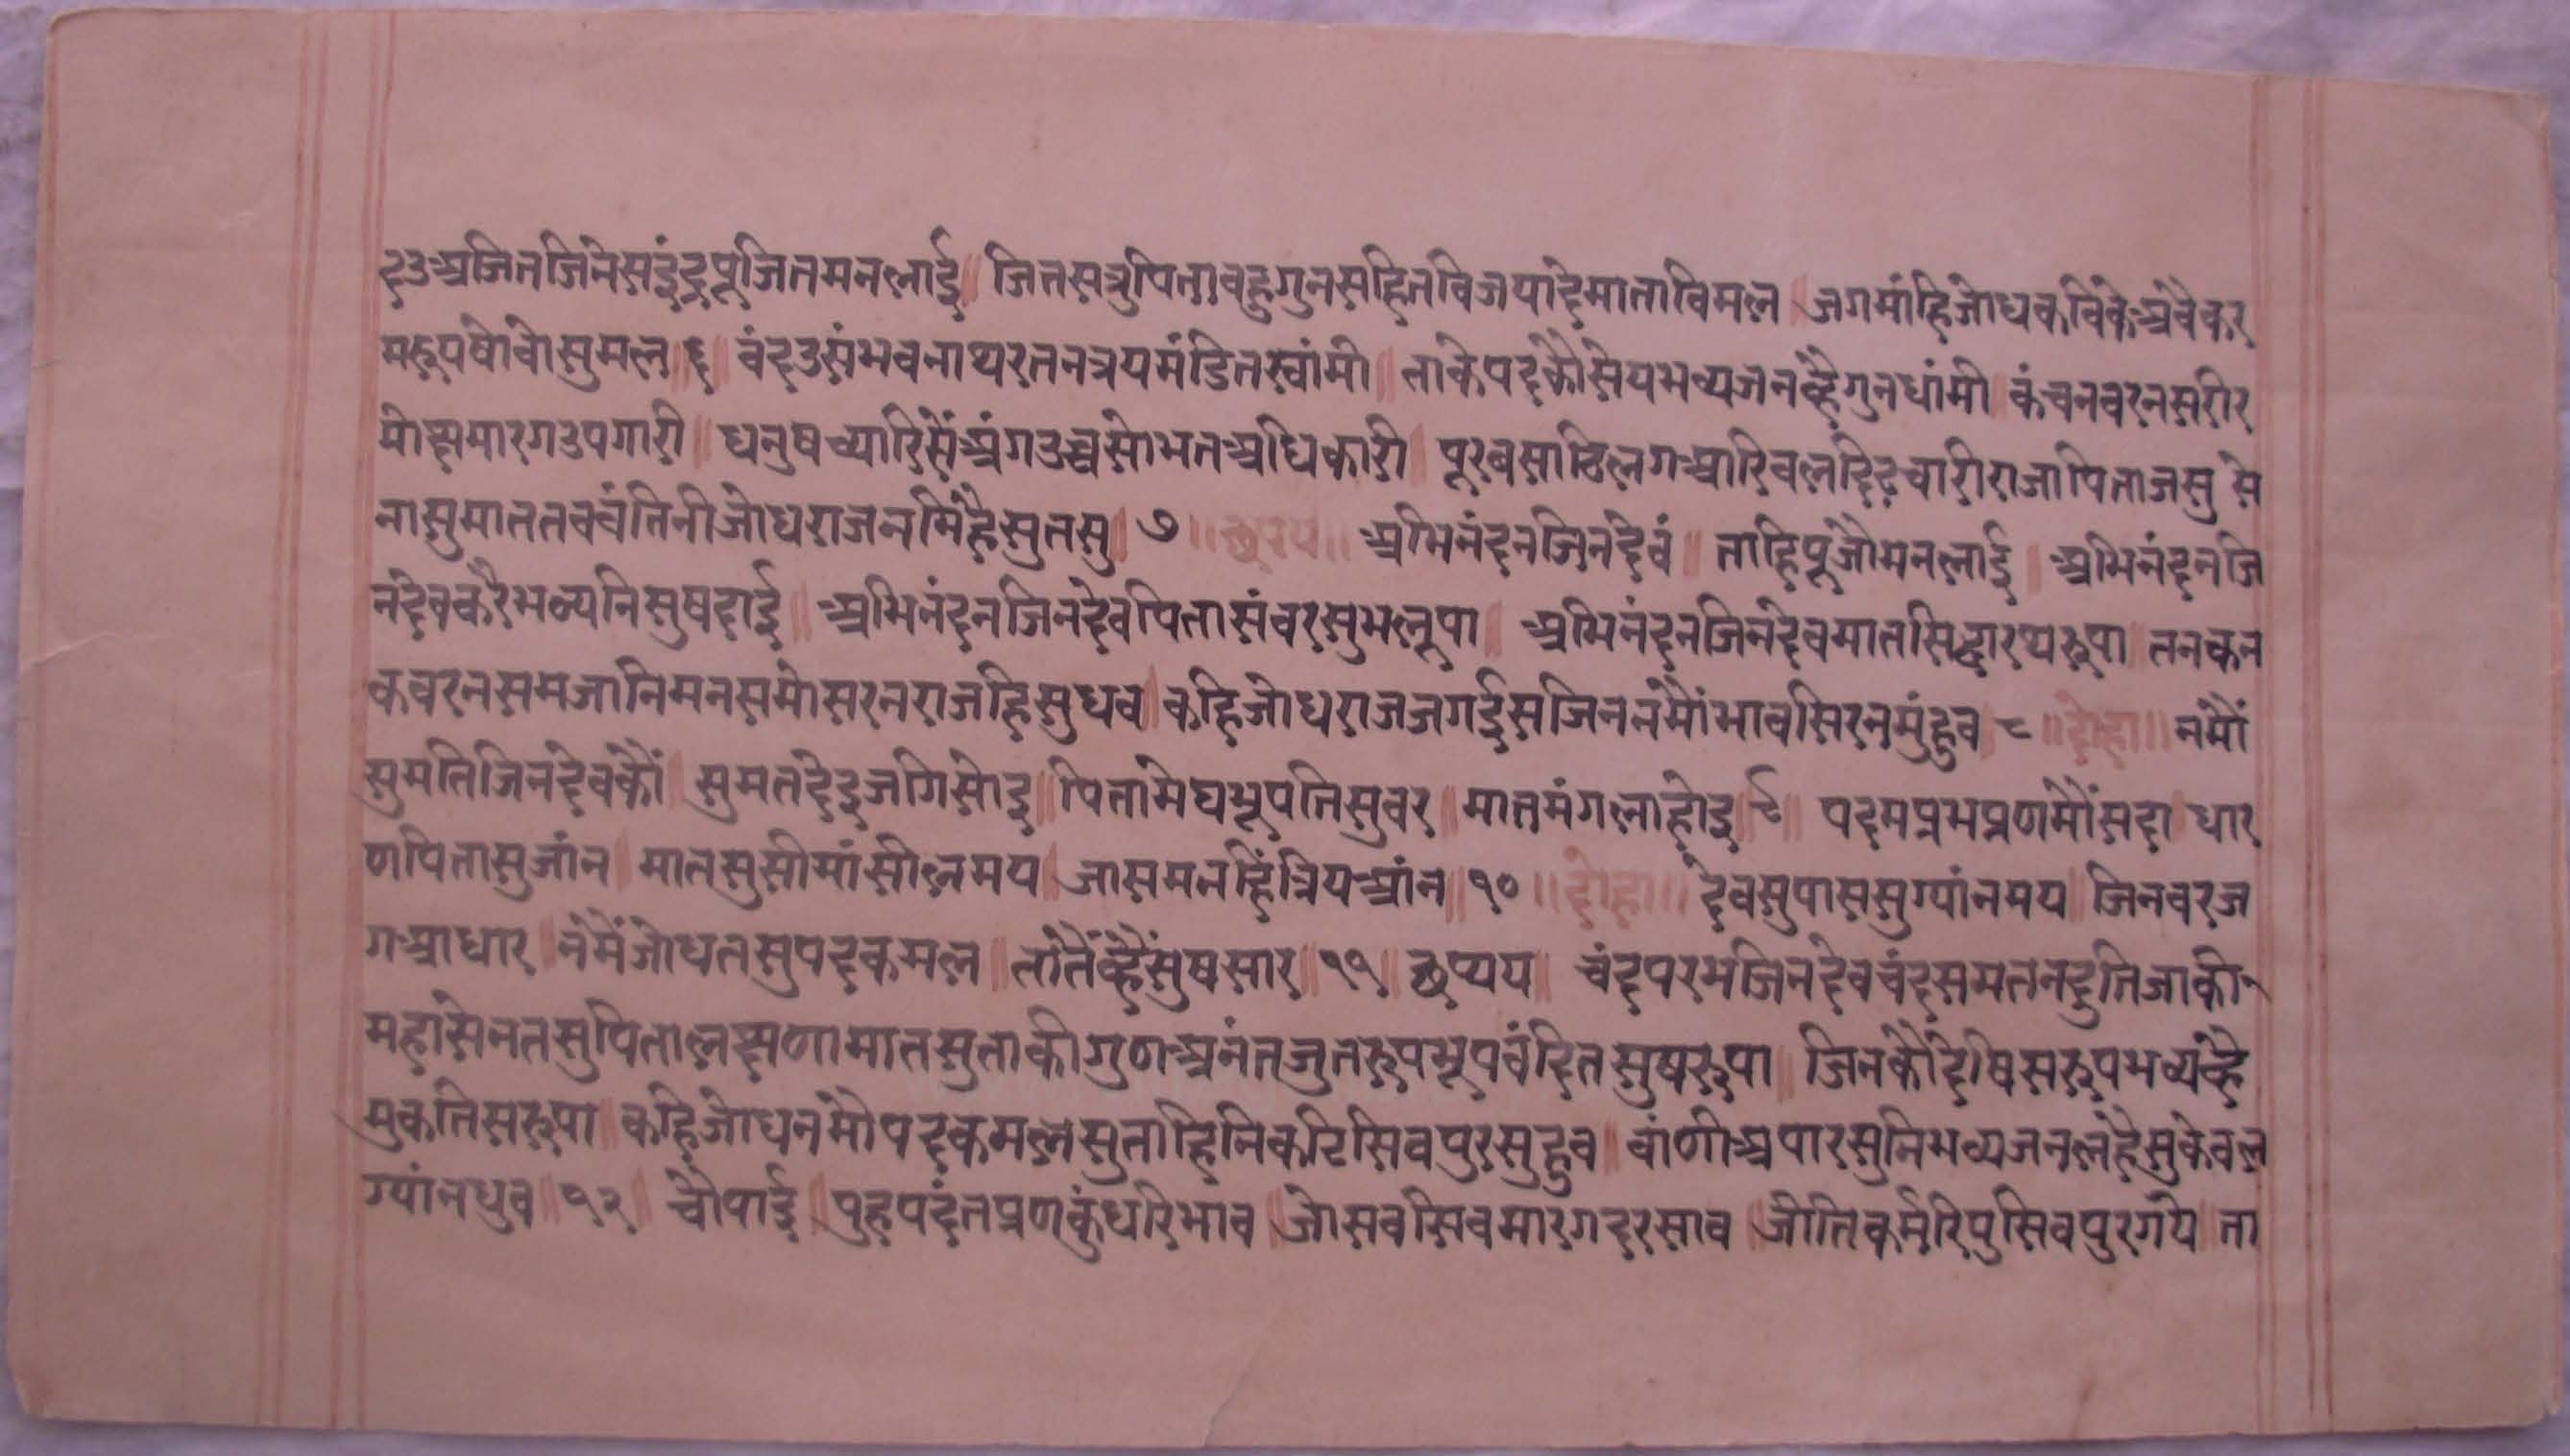 दउअजितजिनेसइंद्रपूजितमनलाई ॥ जितसत्रुपितावहुगुनसहितविजयादेमाताविमल ॥ जगमांहिजोधकविकेअवैकर
मरूपषोवोसुमल ६ ॥ वंदउसंभवनाथरतनत्रयमंडितस्वांमी ॥ ताकेपदकौसेयभव्यजनव्हैगुनधांमी ॥ कंचनवरनसरीर
मोक्षमारगउपगारी ॥ धनुषच्यारिसैंअंगउच्चसोभतअधिकारी ॥ पूरवसाठिलगआरिवलदिढचारीराजापिताजसु से
नासुमाततवचंतिनीजोधराजनमिंहैसुतसु ॥ ७ ॥ छपय ॥ अभिनंदनजिनदेवं ॥ ताहिपूजौमनलाई ॥ अभिनंदनजि
नदेवकरैभव्यनिसुषदाई ॥ अभिनंदनजिनदेवपितासंवरसुभलूपा ॥ अभिनंदनजिनदेवमातसिद्धारथरूपा ॥ तनकन
कवरनसमजानिमनसमोसरनराजहिसुधव ॥ कहिजोधराजजगईसजिननमौंभावसिरनमुंहुव ८ ॥ दोहा ॥ नमौं
सुमतिजिनदेवकौं ॥ सुमतदेइजगिसोइ ॥ पितामेघभूपतिसुवर ॥ मातमंगलाहोइ ९ ॥ पदमप्रभप्रणमौंसदा ॥ धार
णपितासुजांन ॥ मातसुसीमांसीलमय ॥ जासमनहिंत्रियआंन ॥ १० ॥ दोहा ॥ देवसुपाससुग्यांनमय ॥ जिनवरज
गआधार ॥ नंमैंजोधतसुपदकमल ॥ तांतैंव्हैंसुषसार ॥ ११ ॥ छप्पय ॥ चंदपरभजिनदेवचंदसमतनदुतिजाकी
महासेनतसुपितालक्ष्मणामातसुताकीगुणअनंतजुतरूपभूपवंदितसुषरूपा ॥ जिनकौदेषिसरूपभव्यंव्है
मुकतिसरूपा ॥ कहिजोधनमौपदकमलसुताहिनिकटिसिवपुरसुहुव ॥ वांणीअपारसुनिभव्यजनलहैसुकेवल
ग्यांनधुव ॥ १२ ॥ चौपाई ॥ पुहपदंतप्रणकुंधरिभाव ॥ जोसवसिवमारगदरसाव ॥ जीतिकर्मरिपुसिवपुरगये ॥ ता